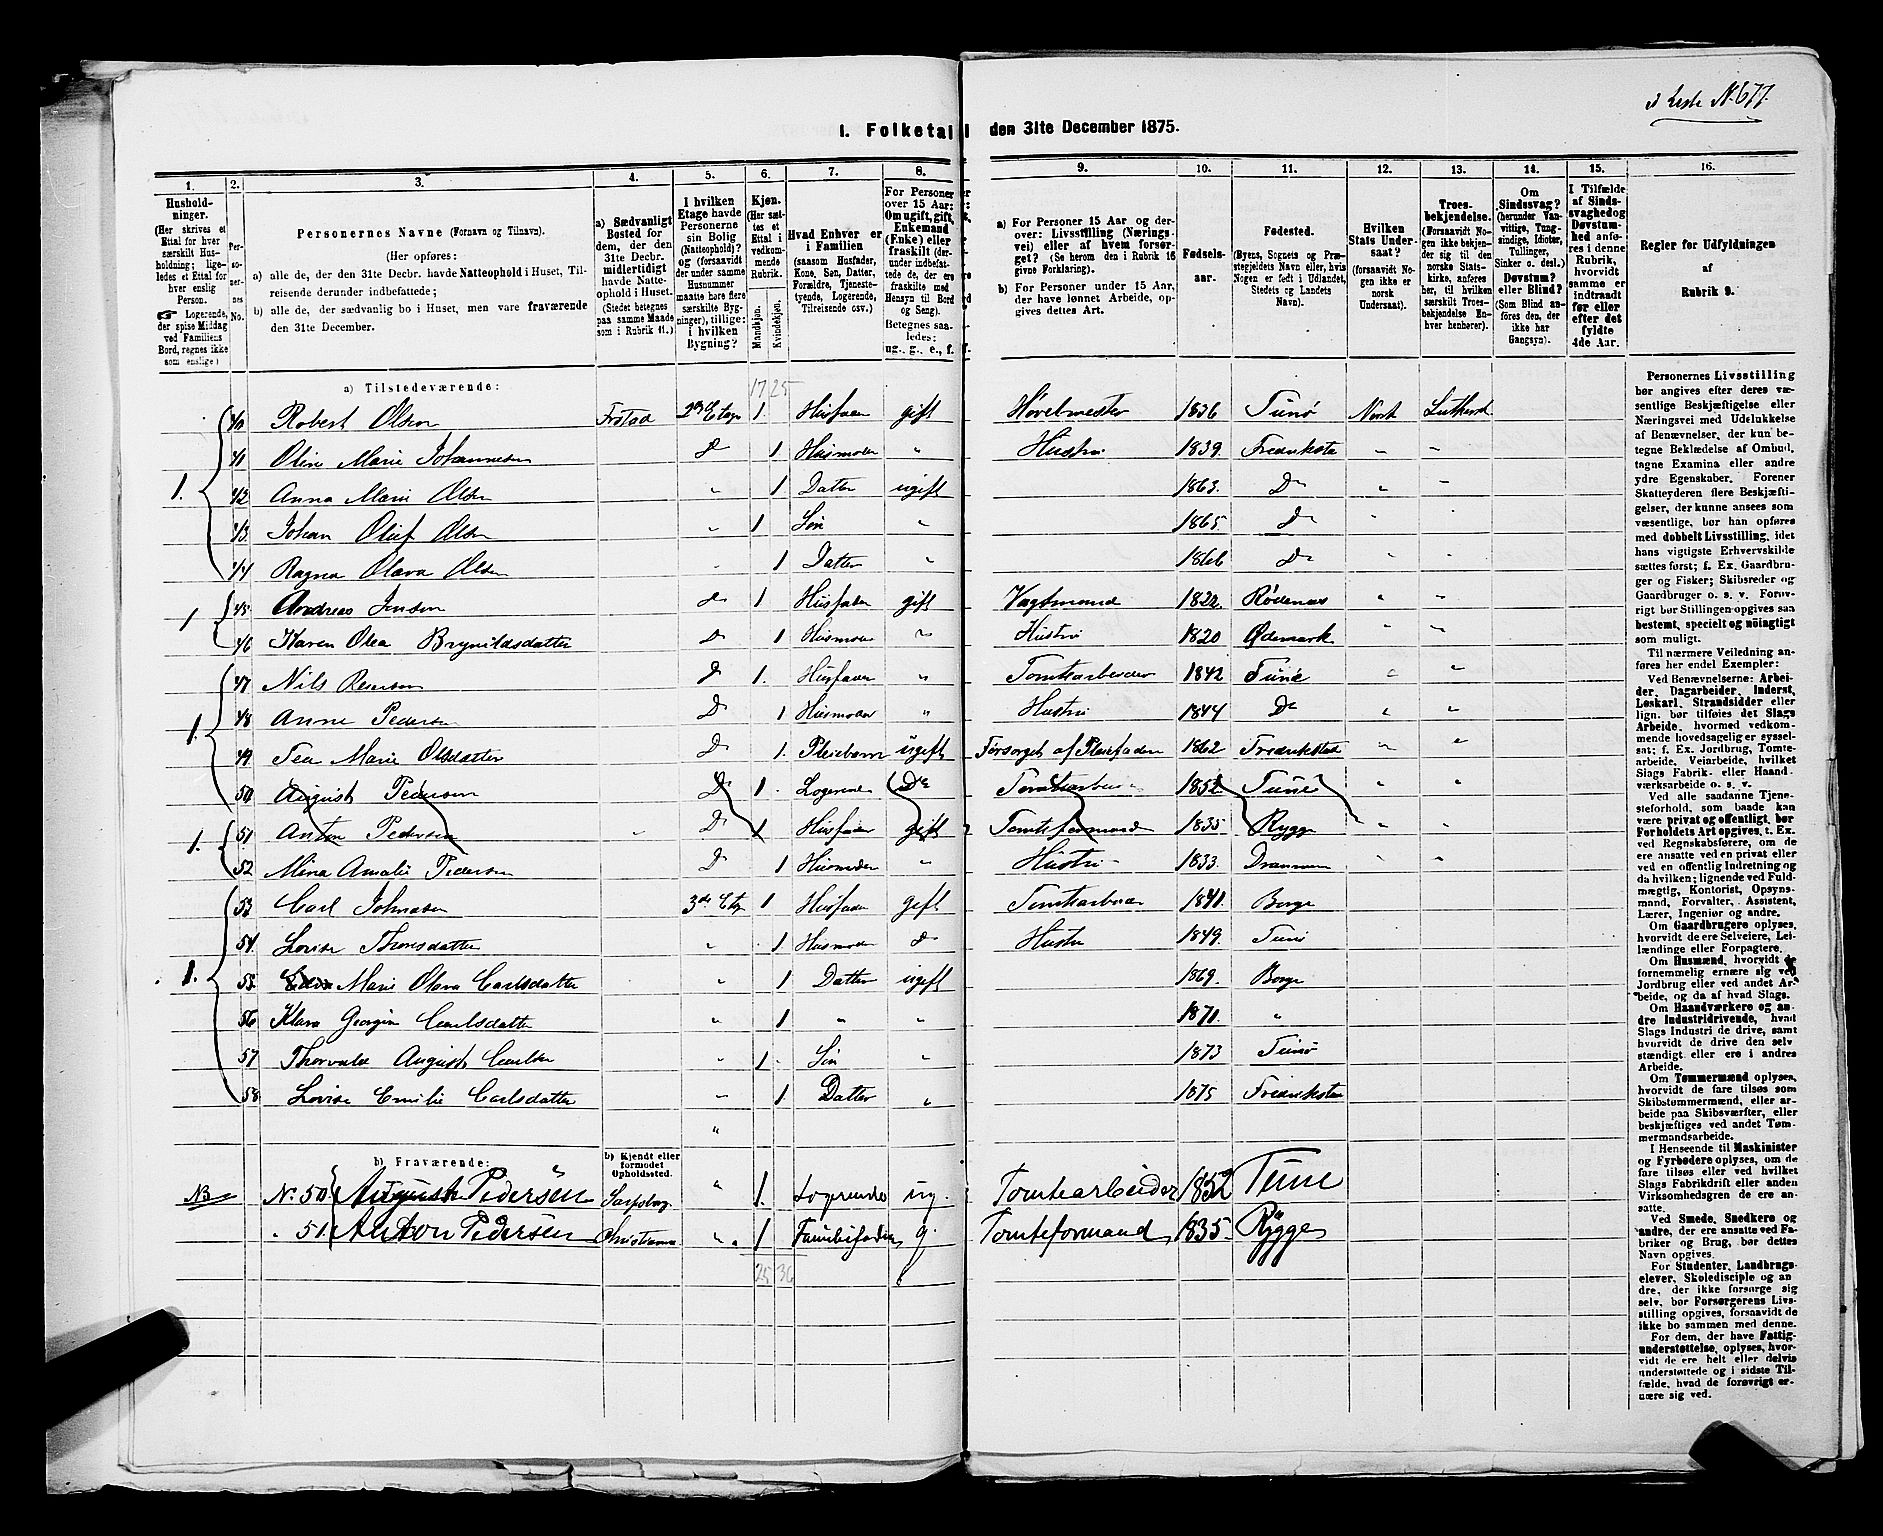 3 Liste N. 677.
1. Folketal den 31te December 1875.
1. 2. 3. 4. 5. 6. 7. 8. 9. 10. 11. 12. 13. 14. 15. 16.
Husholdninger. (Her skrives et Ettal for hver særskilt Husholdning; ligeledes et Ettal for hver enslig Person. ☞ Logerende, der spise Middag ved Familiens Bord, regnes ikke som enslige.)
Personernes No.
Personernes Navne (Fornavn og Tilnavn).
(Her opføres:
a) alle de, der den 31te Decbr. havde Natteophold i Huset, Tilreisende derunder indbefattede;
b) alle de, der sædvanlig bo i Huset, men vare fraværende den 31te December.
a) Sædvanligt Bosted for dem, der den 31te Decbr. midlertidigt havde Natteophold i Huset. (Stedet betegnes paa samme Maade som i Rubrik 11.)
I hvilken Etage havde Personerne sin Bolig (Natteophold)? og (forsaavidt der under samme Husnummer maatte høre flere særskilte Bygninger), tillige: i hvilken Bygning?
Kjøn. (Her sættes et Ettal i vedkommende Rubrik. Mandkjøn. Kvindekjøn.
Hvad Enhver er i Familien (saasom Husfader, Kone, Søn, Datter, Forældre, Tjenestetyende, Logerende, Tilreisende osv.)
For Personer over 15 Aar: Om ugift, gift, Enkemand (Enke) eller fraskilt (derunder indbefattede de, der ere fraskilte med Hensyn til Bord og Seng). Betegnes saaledes: ug., g., e., f.
a) For Personer 15 Aar og derover: Livsstilling (Næringsvei) eller af hvem forsørget? (Se herom den i Rubrik 16 givne Forklaring).
b) For Personer under 15 Aar, der have lønnet Arbeide, opgives dettes Art.
Fødselsaar.
Fødested. (Byens, Sognets og Præstegjeldets Navn eller, hvis Nogen er født i Udlandet, Stedets og Landets Navn).
Hvilken Stats Undersaat? (forsaavidt Nogen ikke er norsk Undersaat).
Troesbekjendelse. (Forsaavidt Nogen ikke bekjender sig til den norske Statskirke, anføres her, til hvilken særskilt Troesbekjendelse Enhver henhører).
Om Sindssvag? (herunder Vanvittige, Tungsindige, Idioter, Tullinger, Sinker o. desl.) Døvstum? eller Blind? (Som Blind anføres den, der ikke har Gangsyn).
I Tilfælde af Sindssvaghed og Døvstumhed anføres i denne Rubrik, hvorvidt samme er indtraadt før eller efter det fyldte 4de Aar.
Regler for Udfyldningen af Rubrik 9.
a) Tilstedeværende: 17 25
40 Robert Olsen Frstad 2den Etage 1. Husfader gift Høvelmester 1836 Tunø Norsk Luthersk
41 Oline Marie Johannesen Do 1 Husmoder " Hustru 1839. Fredriksta " "
1. 42 Anna Marie Olsen " 1 Datter ugift 1863. Do " "
43. Johan Oluf Olsen " 1 Søn " 1865. Do " "
44 Ragna Olava Olsen " 1 Datter " 1866 Do " "
45 Andreas Jensen Do 1 Husfader gift Vagtmand 1822. Rødenæs " "
1 46 Karen Olea Brynildsdatter Do 1 Husmoder " Hustru 1820 Ødemark " "
47 Nils Do 1. Husfader " Tomtearbeider 1842 Tune " "
1. 48 Anne Pedersen Do 1 Husmoder " Hustru 1844 Do " "
49 Tea Marie Olsdatter Do 1. Pleiebarn ugift Forsørget af Pleiefaderen 1862 Fredrikstad " "
50 August Pedersen Do 1 Logerende Do Tomtearbeider 1852 Tune " "
1. 51 Anton Pedersen " Do 1 Husfader gift Tomteformand 1835 Rygge " "
52 Mina Amalie Pedersen Do 1 Husmoder " Hustru 1833. Drammen " "
53 Carl Johnsen 3die Etg 1 Husfader gift Tomtearbeider 1841. Borge
54. Lovise Thorsdatter " 1 Husmoder Do Hustru 1849. Tune
1. 55. Marie Olava Carlsdatter " 1 Datter ugift 1869. Borge
56 Klara Georgine Carlsdatter " 1 " " 1871. "
57 Thorvald August Carlsen " 1 Søn " 1873 Tunø
58 Lovise Emilie Carlsdatter " 1 Datter " 1875 Fredriksta
"
b) Fraværende: b) Kjendt eller formodet Opholdssted.
NB N. 50 August Pedersen Sarpsborg " 1. Logerende ug. Tomtearbeider 1852 Tune
" 51 Anton Pedersen Christiania " 1 Familiefader g. Tomteformand 1835 Rygge
25 36
Personernes Livsstilling bør angives efter deres væsentlige Beskjæftigelse eller Næringsvei med Udelukkelse af Benævnelser, der kun betegne Beklædelse af Ombud, tagne Examina eller andre ydre Egenskaber. Forener Skatteyderen flere Beskjæftigelser, der kunne ansees som væsentlige, bør han opføres med dobbelt Livsstilling, idet hans vigtigste Erhvervskilde sættes først; f. Ex. Gaardbruger og Fisker; Skibsreder og Gaardbruger o. s. v. Forøvrigt bør Stillingen opgives saa bestemt, specielt og nöiagtigt som muligt.
Til nærmere Veiledning anføres her endel Exempler:
Ved Benævnelserne: Arbeider, Dagarbeider, Inderst, Løskarl, Strandsidder eller lign. bør tilføies det Slags Arbeide, hvormed vedkommende hovedsagelig er sysselsat; f. Ex. Jordbrug, Tomtearbeide, Veiarbeide, hvilket Slags Fabrik- eller Haandværksarbeide o. s. v.
Ved alle saadanne Tjenesteforhold, som baade kan være privat og offentligt, bør Forholdets Art opgives, t. Ex. ved Regnskabsførere, om de ere ansatte ved en privat eller ved en offentlig Indretning og da hvilken; lignende ved Fuldmægtig, Kontorist, Opsynsmand, Forvalter, Assistent, Lærer, Ingeniør og andre.
Om Gaardbrugere oplyses, hvorvidt de ere Selveiere, Leilændinge eller Forpagtere.
Om Husmænd, hvorvidt de fornemmelig ernære sig ved Jordbrug eller ved andet Arbeide, og da af hvad Slags.
Om Haandværkere og andre Industridrivende, hvad Slags Industri de drive, samt hvorvidt de drive den selvstændigt eller ere i andres Arbeide.
Om Tømmermænd oplyses, hvorvidt de fare tilsøs som Skibstømmermænd, eller arbeide paa Skibsværfter, eller beskjæftiges ved andet Tømmermandsarbeide.
I Henseende til Maskinister og Fyrbødere oplyses, om de fare tilsøs eller ved hvilket Slags Fabrikdrift eller anden Virksomhedsgren de ere ansatte.
Ved Smede, Snedkere og andre, der ere ansatte ved Fabriker og Brug, bør dettes Navn opgives.
For Studenter, Landbrugselever, Skoledisciple og andre, der ikke forsørge sig selv, bør Forsørgerens Livsstilling opgives, forsaavidt de ikke bo sammen med denne.
For dem, der have Fattigunderstøttelse, oplyses, hvorvidt de ere helt eller delvis understøttede og i sidste Tilfælde, hvad de forøvrigt ernære sig ved.